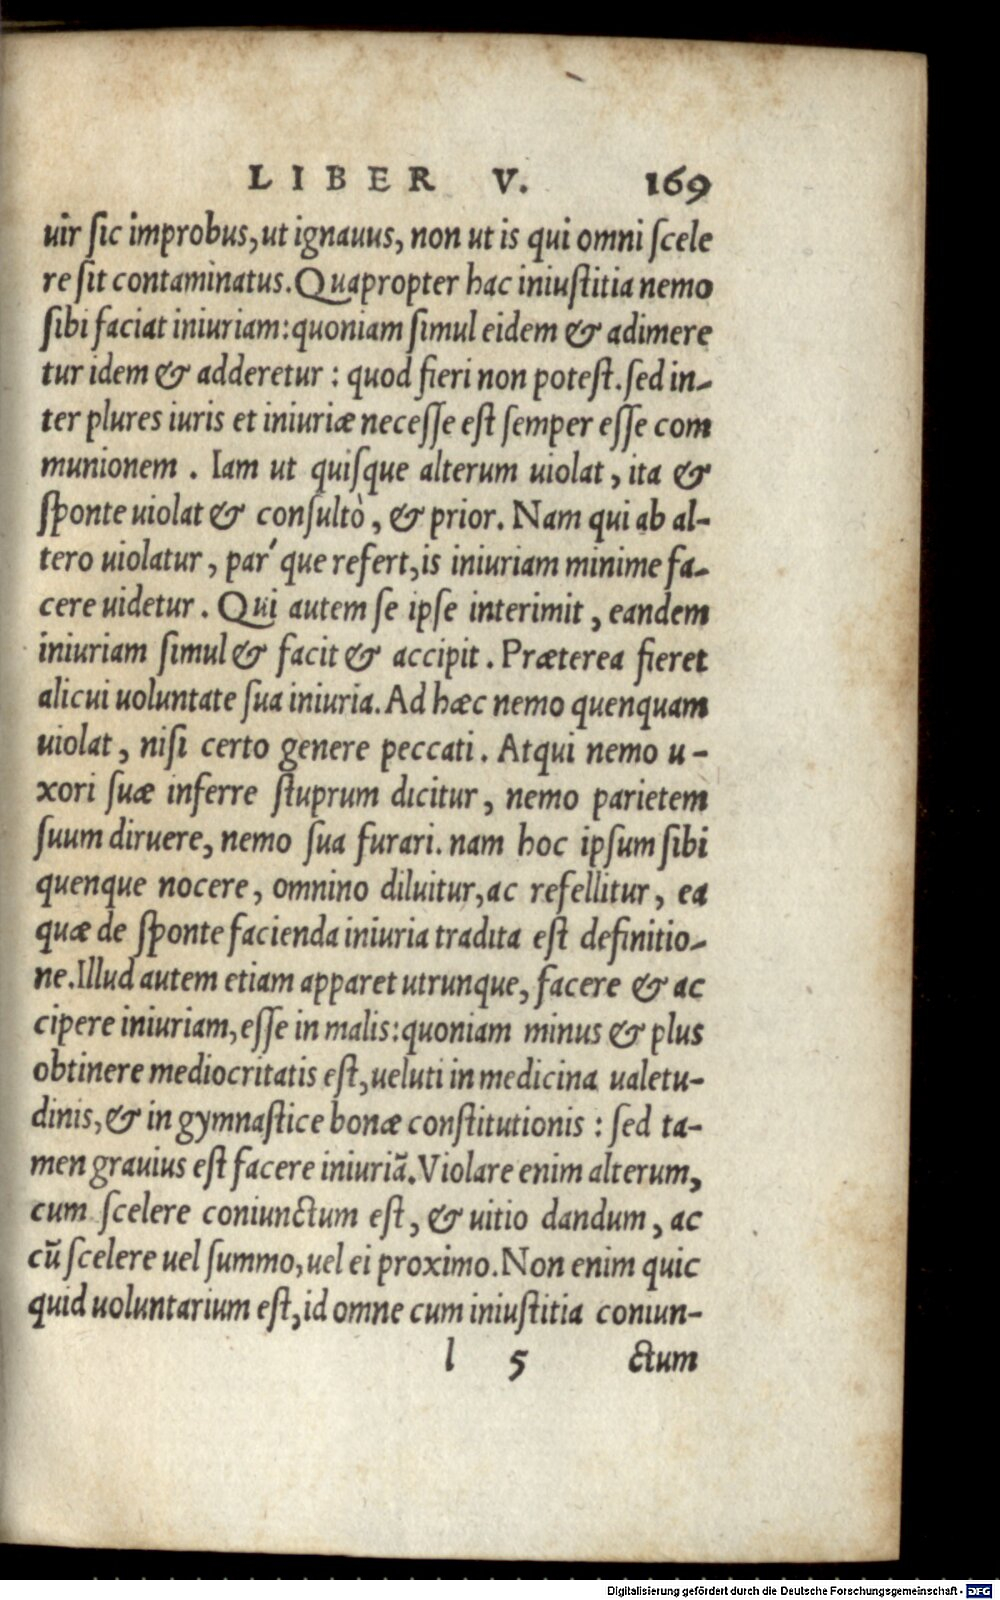 LIBER V. 169
uir sic improbus, ut ignauus, non ut is qui omni scele
re sit contaminatus. Quapropter hac iniustitia nemo
sibi faciat iniuriam: quoniam simul eidem & adimere
tur idem & adderetur: quod fieri non potest. sed in-
ter plures iuris et iniuriæ necesse est semper esse com
munionem. Iam ut quisque alterum uiolat, ita &
sponte uiolat & consultò, & prior. Nam qui ab al-
tero uiolatur, par'que refert, is iniuriam minime fa-
cere uidetur. Qui autem se ipse interimit, eandem
iniuriam simul & facit & accipit. Præterea fieret
alicui uoluntate sua iniuria. Ad hæc nemo quenquam
uiolat, nisi certo genere peccati. Atqui nemo u-
xori suæ inferre stuprum dicitur, nemo parietem
suum diruere, nemo sua furari. nam hoc ipsum sibi
quenque nocere, omnino diluitur, ac refellitur, ea
quæ de sponte facienda iniuria tradita est definitio-
ne. Illud autem etiam apparet utrunque, facere & ac
cipere iniuriam, esse in malis: quoniam minus & plus
obtinere mediocritatis est, ueluti in medicina ualetu-
dinis, & in gymnastice bonæ constitutionis: sed ta-
men grauius est facere iniuriā. Violare enim alterum,
cum scelere coniunctum est, & uitio dandum, ac
cū scelere uel summo, uel ei proximo. Non enim quic
quid uoluntarium est, id omne cum iniustitia coniun-
l 5 ctum
Digitalisierung gefördert durch die Deutsche Forschungsgemeinschaft - DFG